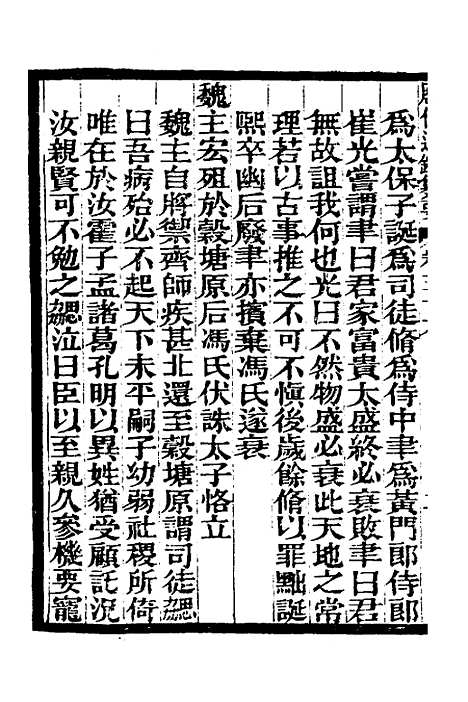 爲太保子誕爲司徒脩爲侍中聿爲黃門郎侍郎
崔光嘗謂聿曰君家富貴太盛終必衰敗聿曰君
無故詛我何也光曰不然物盛必衰此天地之常
理若以古事推之不可不愼後歲餘脩以罪黜誕
熙卒幽后廢聿亦擯棄馮氏遂衰
魏主宏殂於穀塘原后馮氏伏誅太子恪立
魏主自將禦齊師疾甚北還至穀塘原謂司徒勰
曰吾病殆必不起天下未平嗣子幼弱社稷所倚
唯在於汝霍子孟諸葛孔明以異姓猶受顧託況
汝親賢可不勉之勰泣曰臣以至親久參機要寵